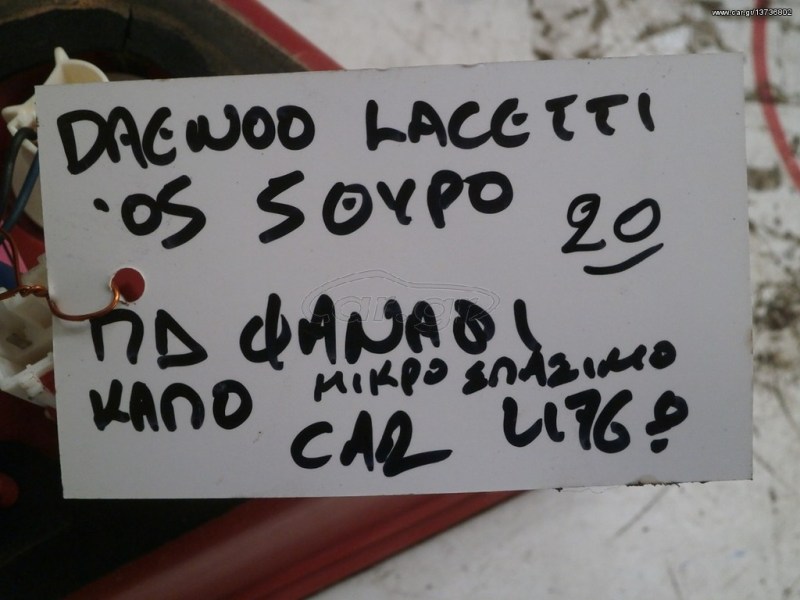 www.car.gr/13736802
DAEWOO LACETTI
'05 5ΘΥΡΟ 20
ΠΔ ΦΑΝΑΡΙ
ΚΑΠΟ ΜΙΚΡΟ ΣΠΑΣΙΜΟ
CAR
car.gr